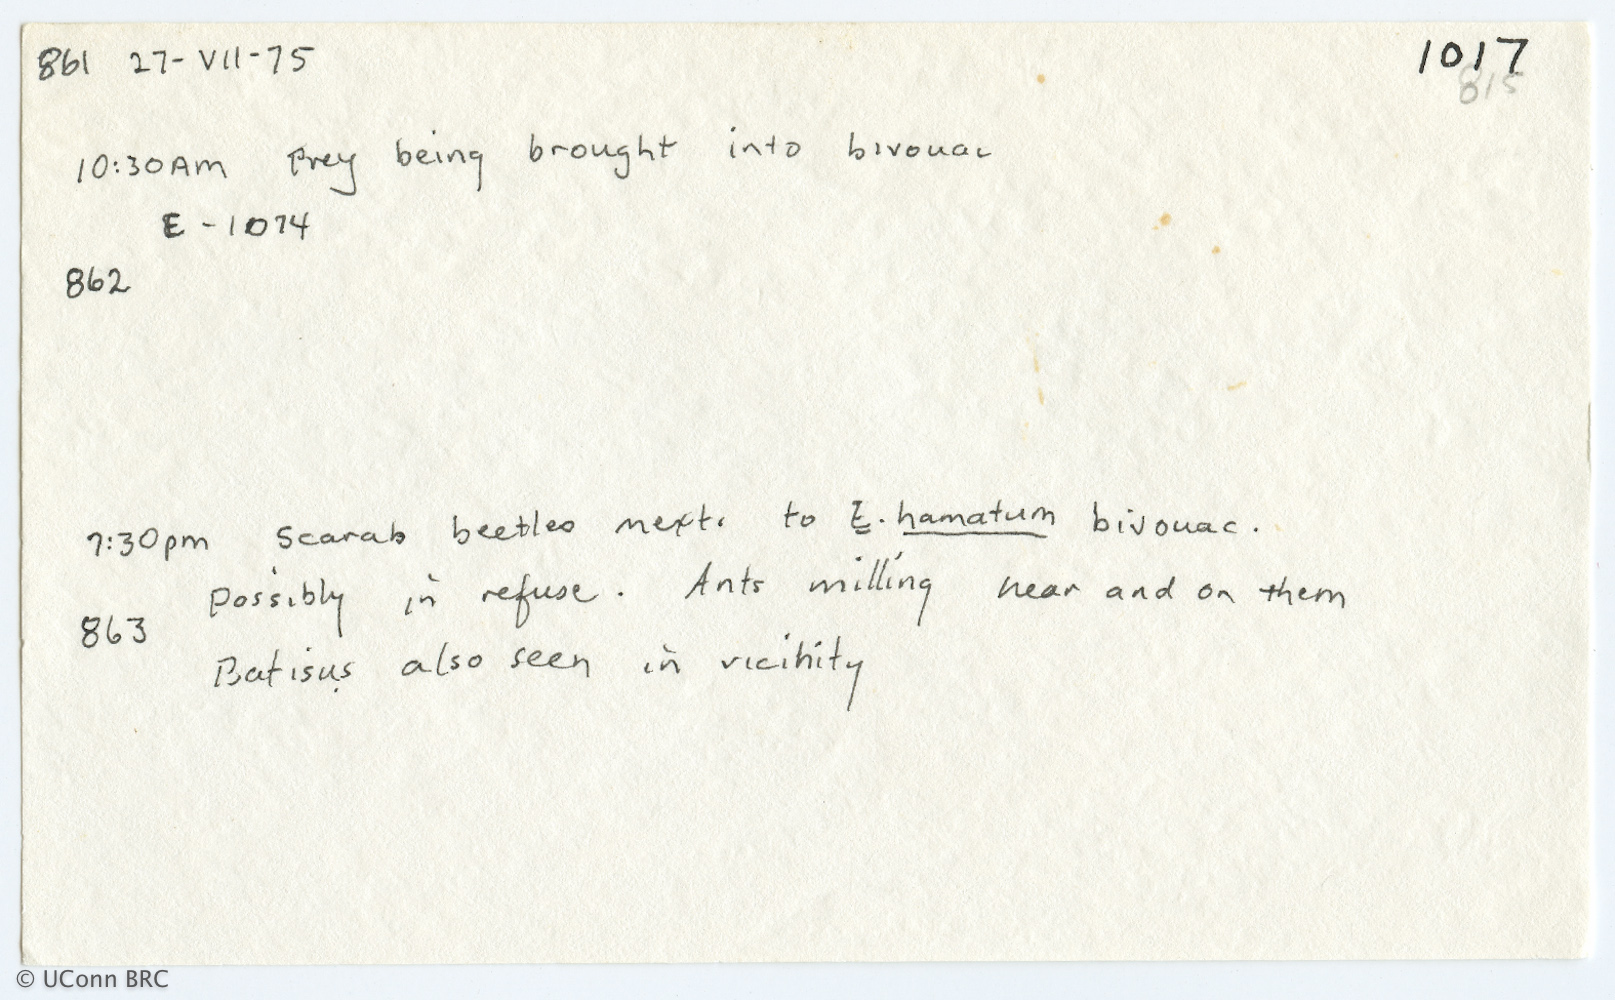 861 27-VII-75
1017
815
10:30AM Prey being brought into bivouac
E-1074
862
7:30pm Scarab beetles next to E. hamatum bivouac.
possibly in refuse. Ants milling near and on them
863
Batisus also seen in vicinity
© UConn BRC